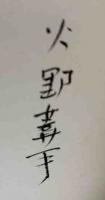 火野葦平